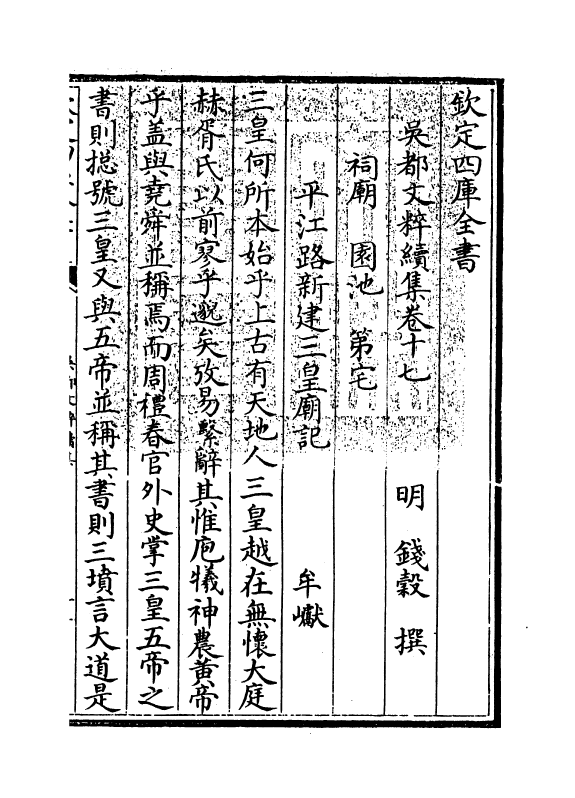 欽定四庫全書
吳都文粹續集卷十七
明 錢穀 撰
祠廟 園池 第宅
平江路新建三皇廟記 牟巘
三皇何所本始乎上古有天地人三皇越在無懷大庭
赫胥氏以前寥乎邈矣攷易繫辭其惟庖犧神農黄帝
乎盖與堯舜並稱焉而周禮春官外史掌三皇五帝之
書則揔號三皇又與五帝並稱其書則三墳言大道是